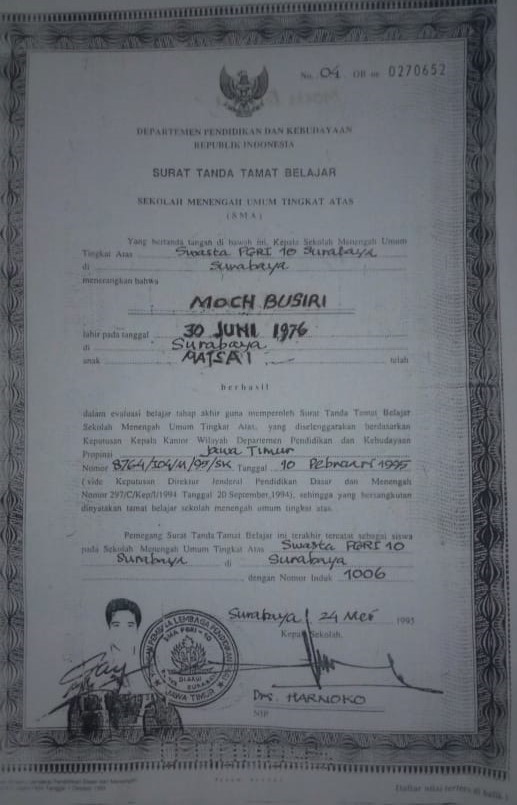 No. 04 OB oe 0270652
DEPARTEMEN PENDIDIKAN DAN KEBUDAYAAN
REPUBLIK INDONESIA
SURAT TANDA TAMAT BELAJAR
SEKOLAH MENENGAH UMUM TINGKAT ATAS
(SMA)
Yang bertanda tangan di bawah ini, Kepala Sekolah Menengah Umum
Tingkat Atas Swasta PGRI 10 Surabaya
di Surabaya
menerangkan bahwa
MOCH BUSIRI
lahir pada tanggal 30 JUNI 1976
di Surabaya
anak MATSAI telah
berhasil
dalam evaluasi belajar tahap akhir guna memperoleh Surat Tanda Tamat Belajar
Sekolah Menengah Umum Tingkat Atas, yang diselenggarakan berdasarkan
Keputusan Kepala Kantor Wilayah Departemen Pendidikan dan Kebudayaan
Propinsi Jawa Timur
Nomor 8764/104/M/95/SK Tanggal 10 Pebruari 1995
(vide Keputusan Direktur Jenderal Pendidikan Dasar dan Menengah
Nomor 297/C/Kep/I/1994 Tanggal 20 September,1994), sehingga yang bersangkutan
dinyatakan tamat belajar sekolah menengah umum tingkat atas.
Pemegang Surat Tanda Tamat Belajar ini terakhir tercatat sebagai siswa
pada Sekolah Menengah Umum Tingkat Atas Swasta PGRI 10
Surabaya di Surabaya
dengan Nomor Induk 1006
Surabaya, 24 Mei 1995
Kepala Sekolah.
SMA PGRI - 10
DIAKUI
SURABAYA
JAWA TIMUR
Drs. HARNOKO
NIP
Daftar nilai tertera di balik